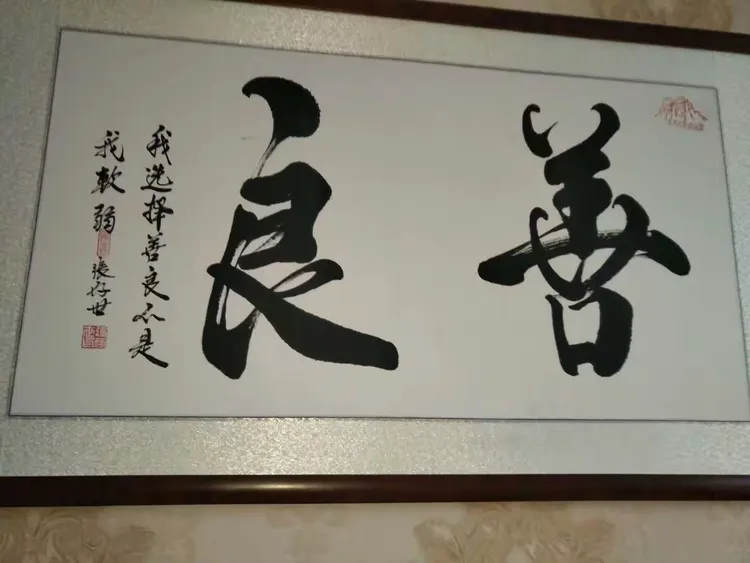 善良
我选择善良不是
我软弱
張好世